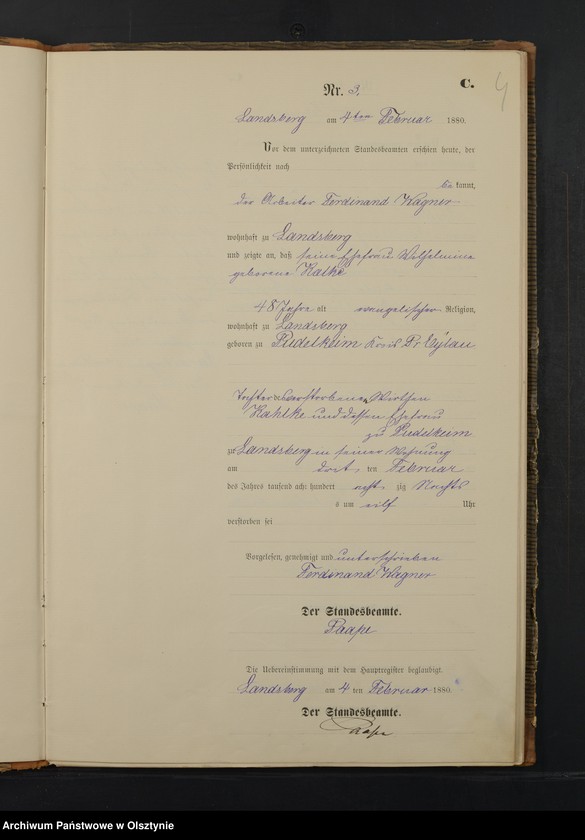 C.
4
Nr. 3.
Landsberg am 4ten Februar 1880.
Vor dem unterzeichneten Standesbeamten erschien heute, der
Persönlichkeit nach
be kannt,
der Arbeiter Ferdinand Wagner
wohnhaft zu Landsberg
und zeigte an, daß seine Ehefrau Wilhelmine
geborene Kalke
48 Jahre alt evangelischer Religion,
wohnhaft zu Landsberg
geboren zu Pudelkeim Kreis Pr Eylau
Tochter des verstorbenen Wirthen
Kahlke und dessen Ehefrau
zu Pudelkeim
zu Landsberg in seiner Wohnung
am ten Februar
des Jahres tausend acht hundert acht zig Nachts
s um eilf Uhr
verstorben sei
Vorgelesen, genehmigt und unterschrieben
Ferdinand Wagner
Der Standesbeamte.
Paape
Die Uebereinstimmung mit dem Hauptregister beglaubigt.
Landsberg am 4 ten Februar 1880.
Der Standesbeamte.
Paape
Archiwum Państwowe w Olsztynie